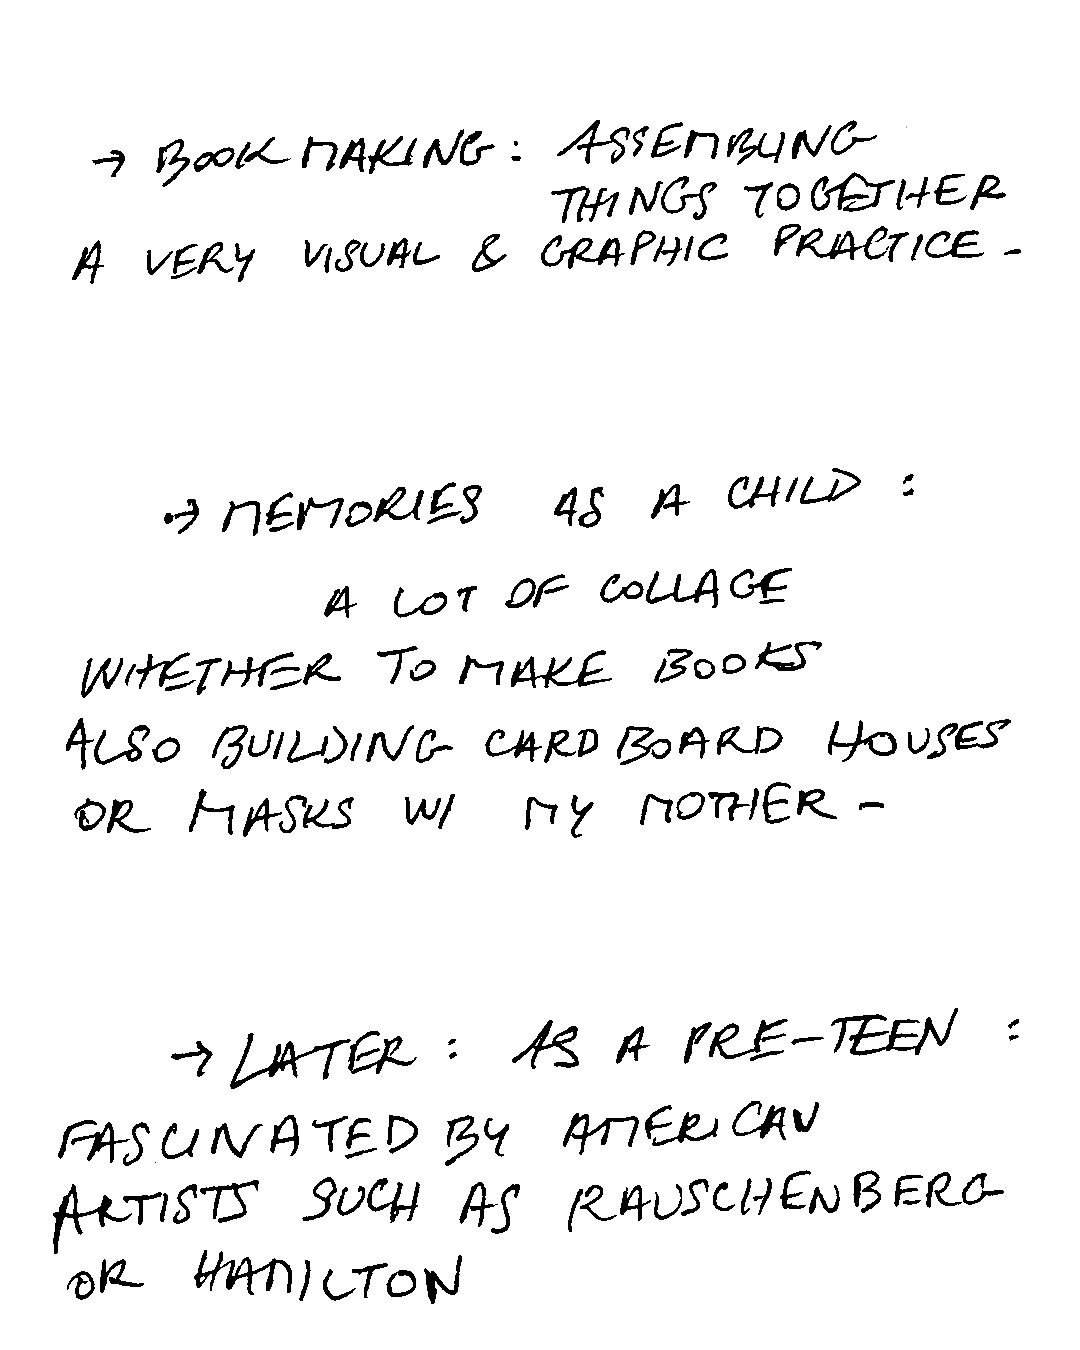 → BOOK MAKING: ASSEMBLING
THINGS TOGETHER
A VERY VISUAL & GRAPHIC PRACTICE -
→ MEMORIES AS A CHILD :
A LOT OF COLLAGE
WHETHER TO MAKE BOOKS
ALSO BUILDING CARDBOARD HOUSES
OR MASKS W/ MY MOTHER -
→ LATER : AS A PRE-TEEN :
FASCINATED BY AMERICAN
ARTISTS SUCH AS RAUSCHENBERG
OR HAMILTON